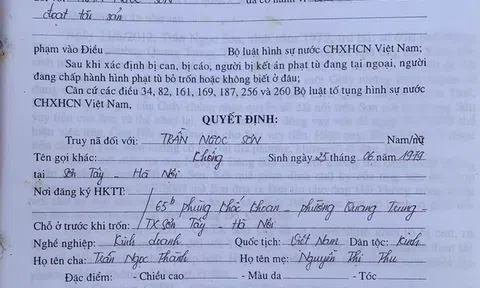 đoạt tài sản
phạm vào Điều Bộ luật hình sự nước CHXHCN Việt Nam;
Sau khi xác định bị can, bị cáo, người bị kết án phạt tù đang tại ngoại, người
đang chấp hành hình phạt tù bỏ trốn hoặc không biết ở đâu;
Căn cứ các điều 34, 82, 161, 169, 187, 256 và 260 Bộ luật tố tụng hình sự nước
CHXHCN Việt Nam,
QUYẾT ĐỊNH:
Truy nã đối với: TRẦN NGỌC SƠN Nam/nữ
Tên gọi khác: Không Sinh ngày 25 tháng 06 năm 1979
tại Sơn Tây - Hà Nội
Nơi đăng ký HKTT:
65b phùng khắc khoan - phường Quang Trung -
Chỗ ở trước khi trốn: TX Sơn Tây - Hà Nội
Nghề nghiệp: Kinh doanh Quốc tịch: Việt Nam Dân tộc: Kinh
Họ tên cha: Trần Ngọc Thành Họ tên mẹ: Nguyễn Thị Thu
Đặc điểm: - Chiều cao - Màu da - Tóc